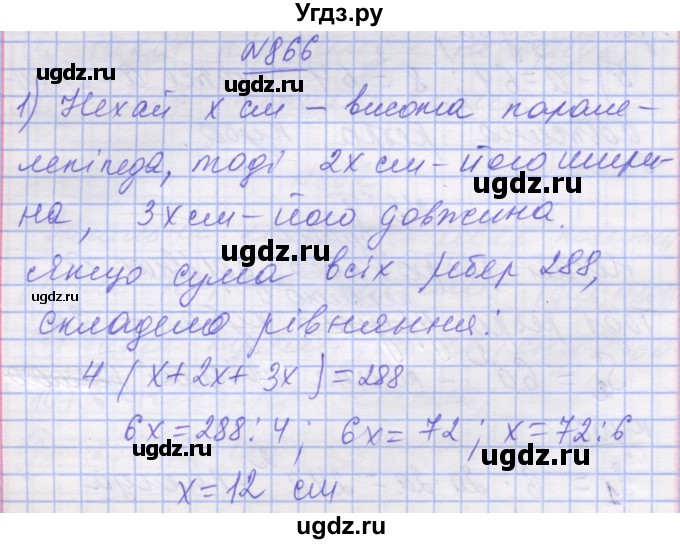 Угдз.ру
№866
ugdz.ru ugdz.ru
1) Нехай x см – висота парале-
ugdz.ru ugdz.ru
лепіпеда, тоді 2x см – його шири-
на, 3x см – його довжина.
ugdz.ru
Якщо сума всіх ребер 288,
ugdz.ru ugdz.ru
складемо рівняння:
ugdz.ru
4 (x+2x+3x)=288
ugdz.ru
6x=288:4; 6x=72; x=72:6
ugdz.ru ugdz.ru
x=12 см
ugdz.ru